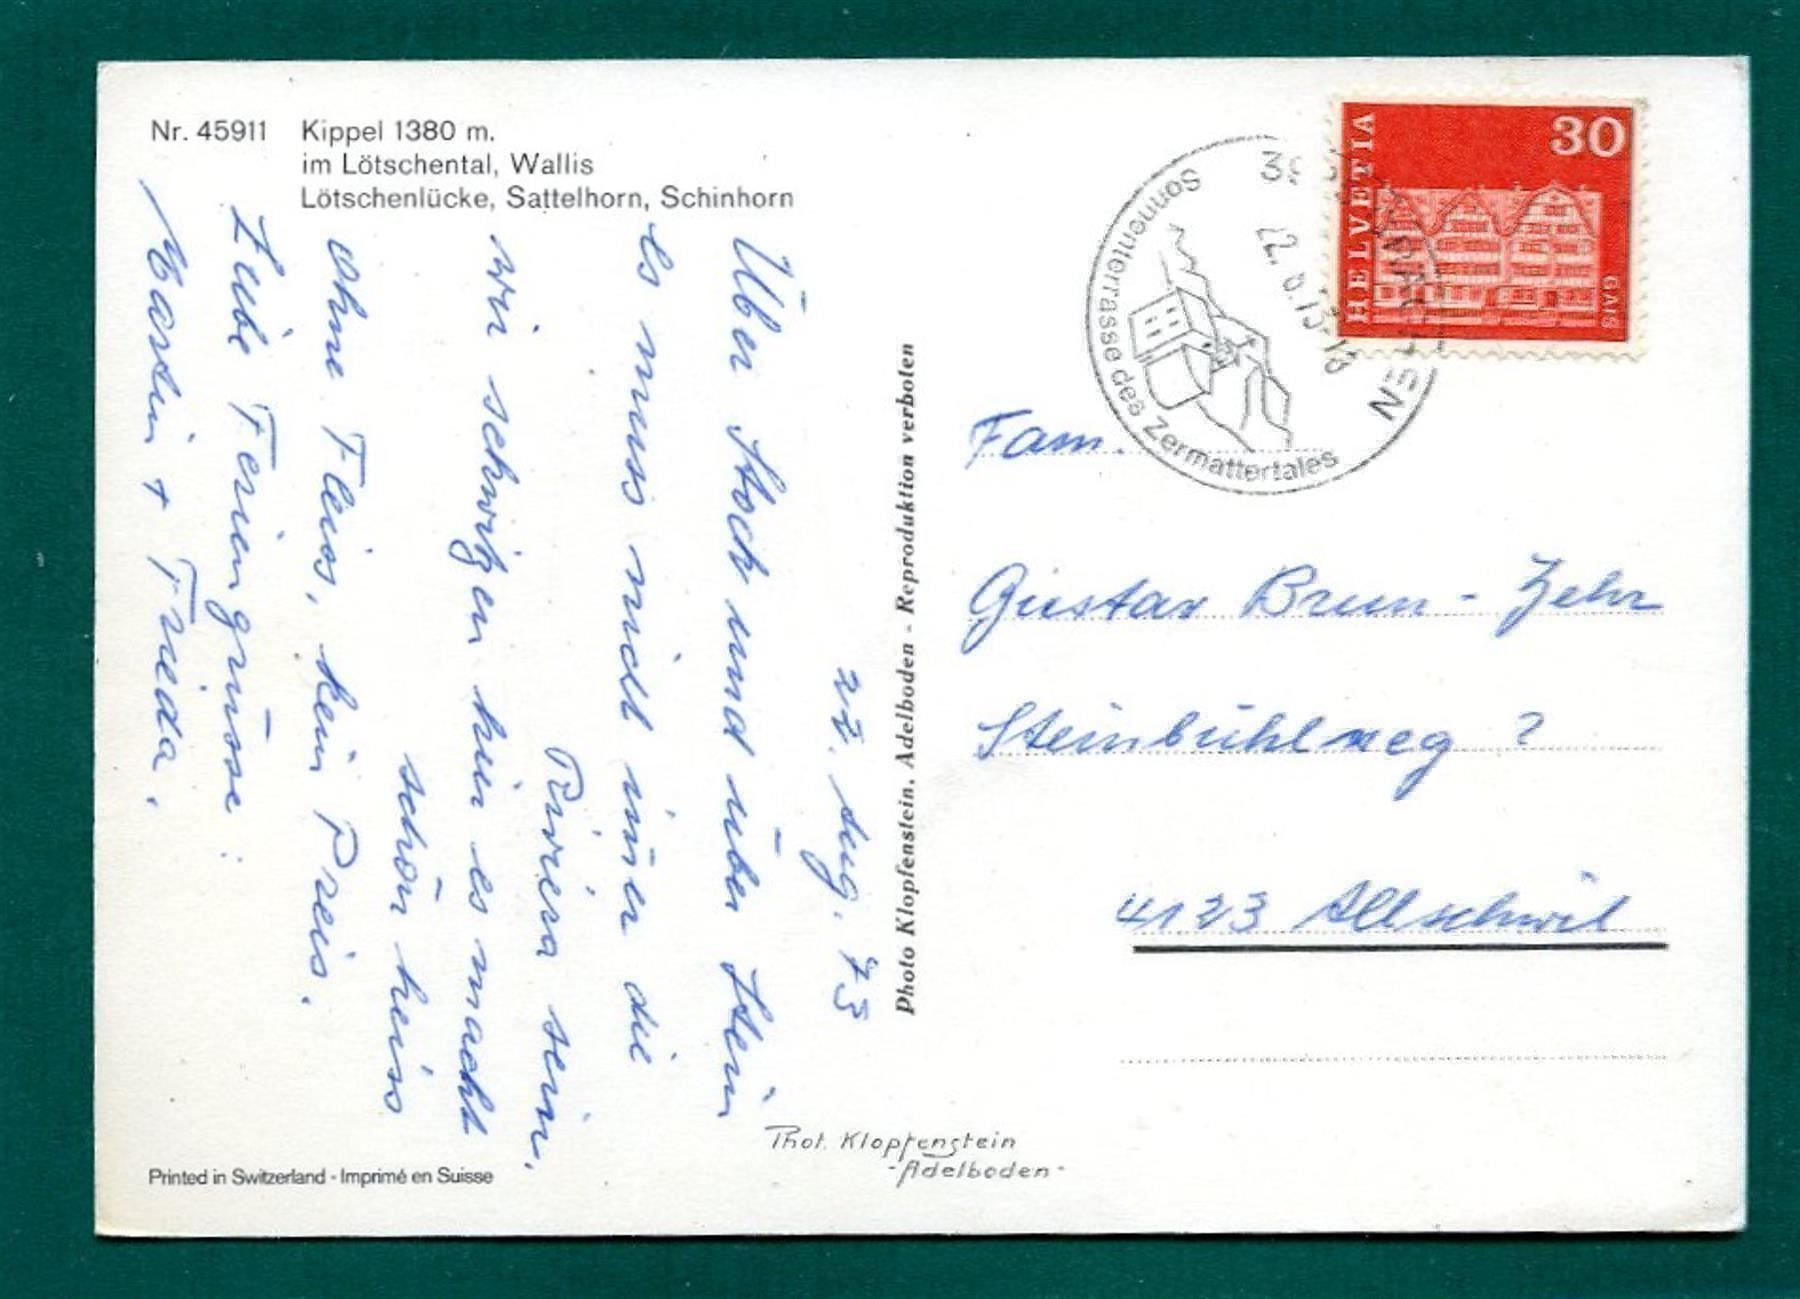 Nr. 45911 Kippel 1380 m.
im Lötschental, Wallis
Lötschenlücke, Sattelhorn, Schinhorn
22. Aug. 73
Über Stock und über Stein
es muss nicht immer die
Riviera sein.
wir schwitzen hier es macht
schön heiss
ohne Fleiss, kein Preis.
Liebe Feriengrüsse:
+ Frieda.
Printed in Switzerland - Imprimé en Suisse
Photo Klopfenstein, Adelboden - Reproduktion verboten
Phot. Klopfenstein
-Adelboden-
Sonnenterrasse des Zermattertales
HELVETIA
30
GAIS
Fam.
Gustav Brun - Zehr
Steinbühlweg
4123 Allschwil